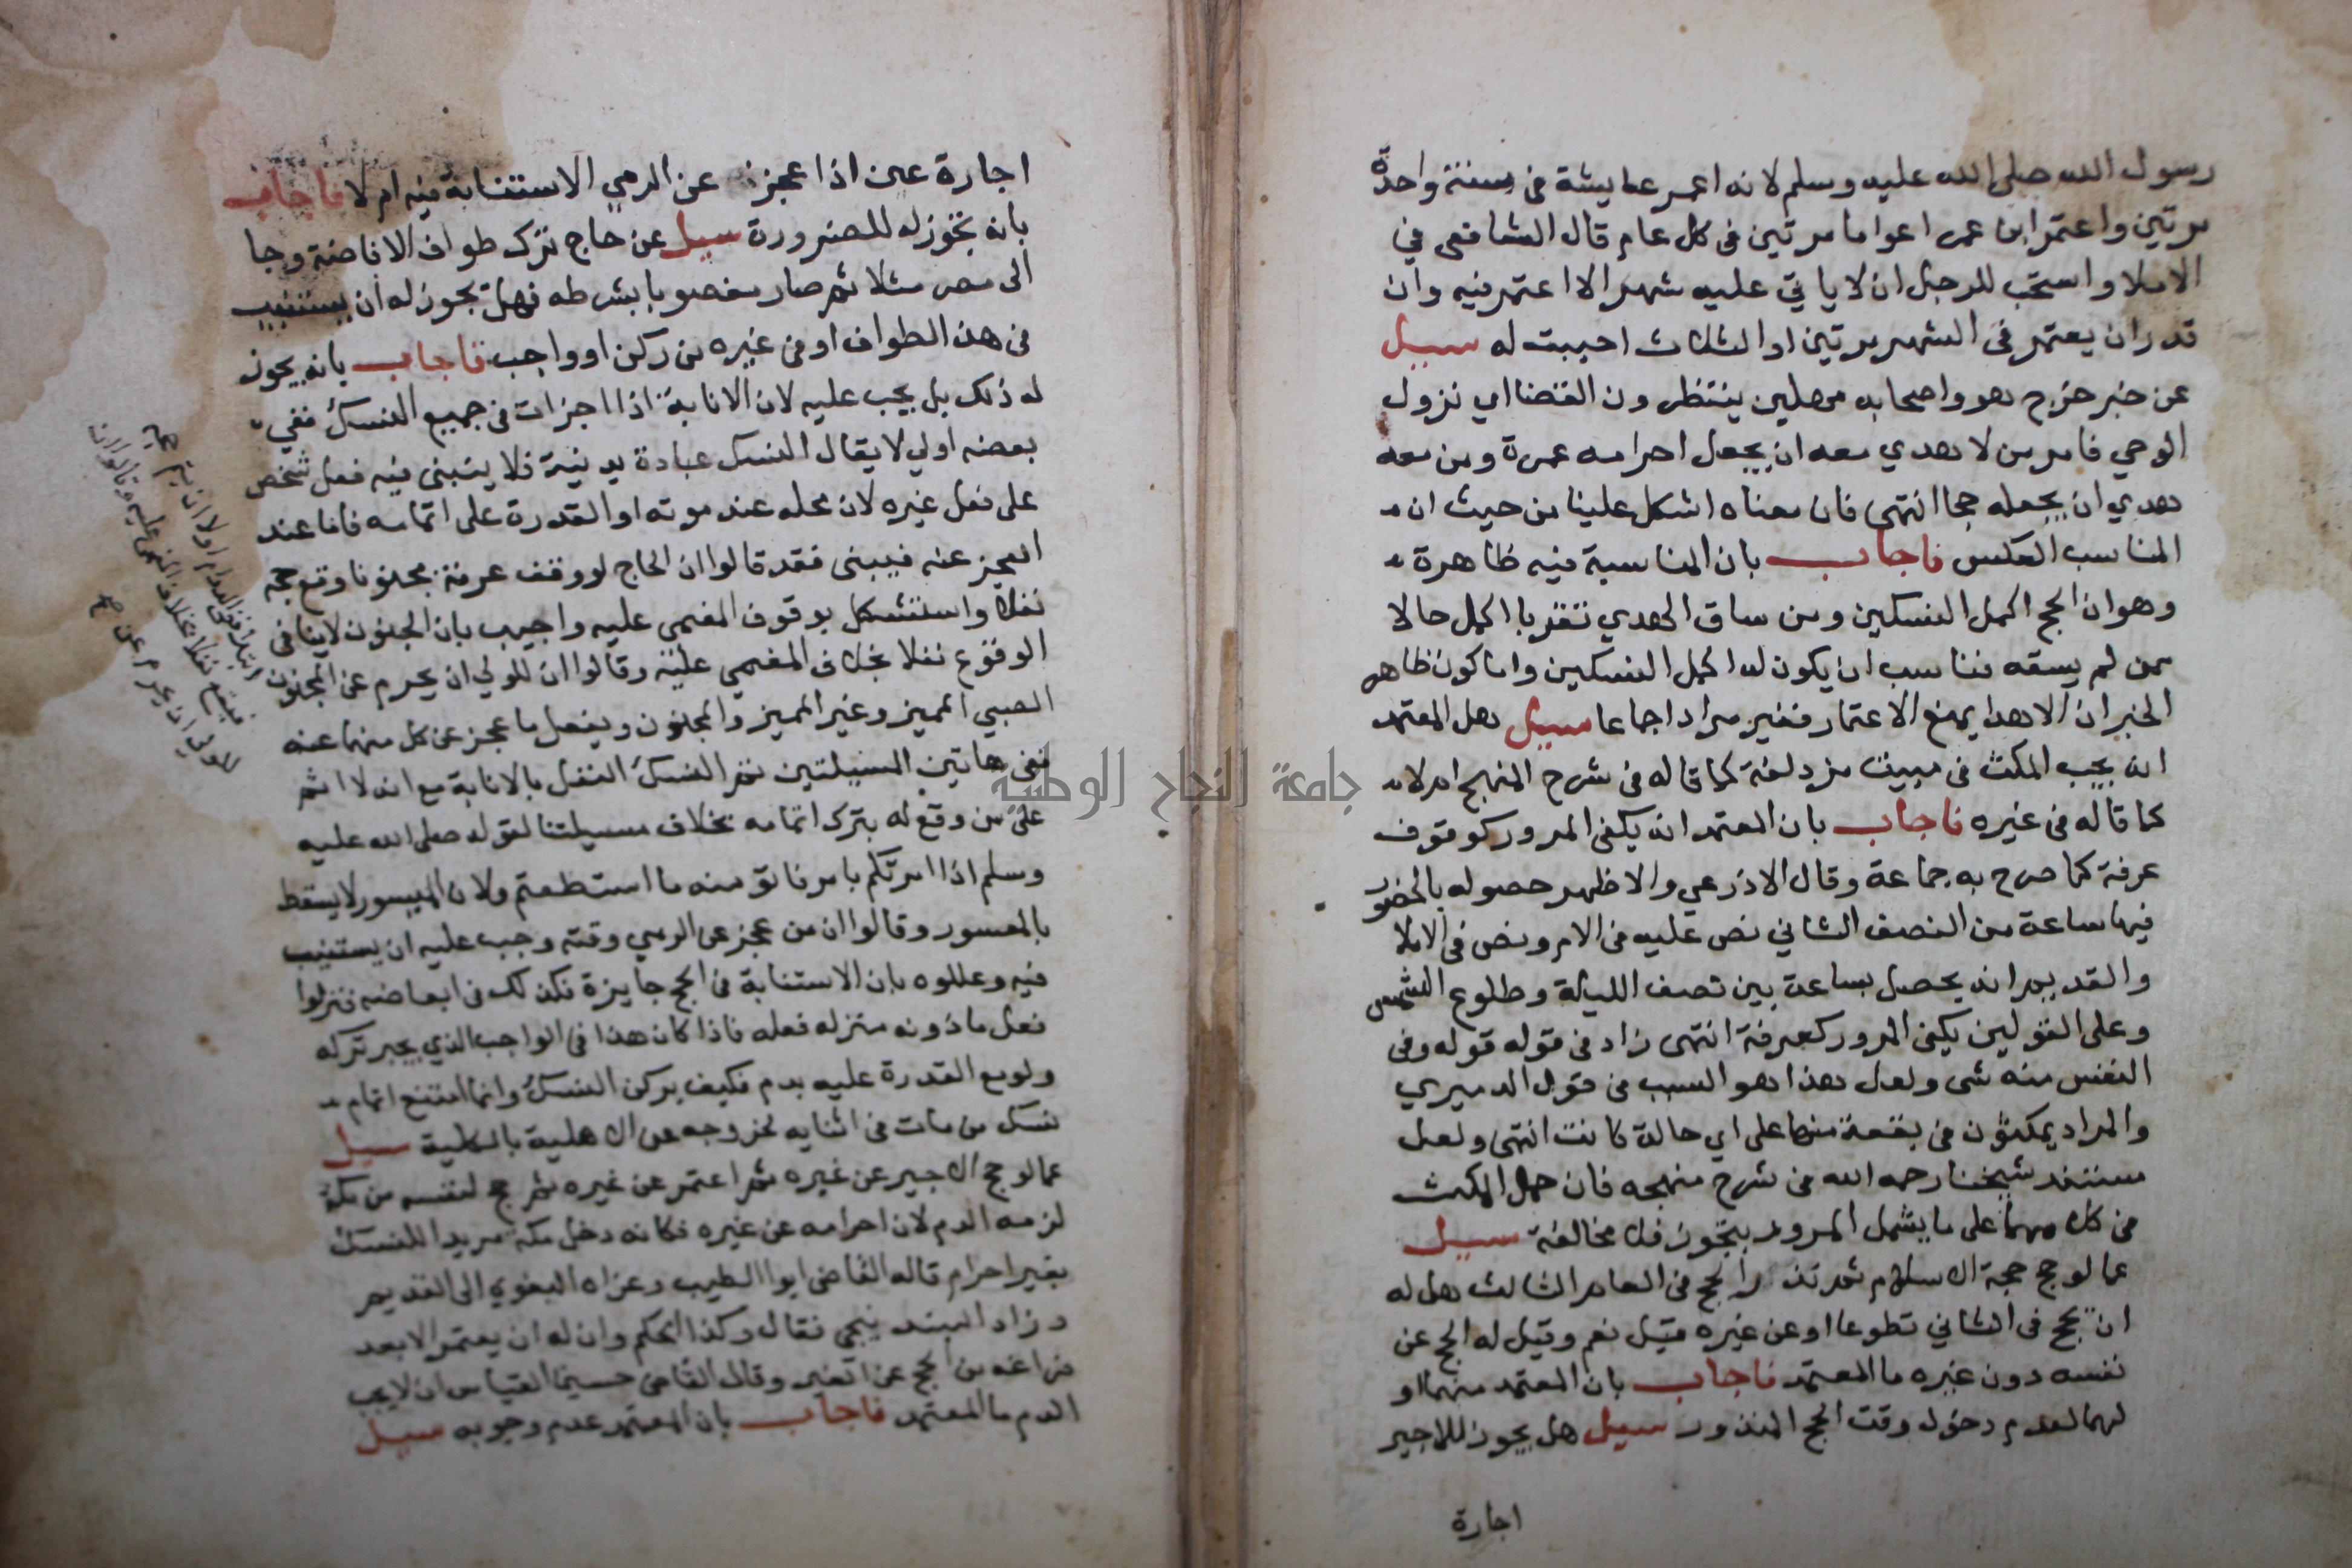 رسول الله صلى الله عليه وسلم لانه اعمر عايشة في سنة واحدة
مرتين واعتمر ابن عمر اعواما مرتين في كل عام قال الشافعى في
الاملا واستحب للرجل ان لا ياتي عليه شهر الا اعتمر فيه وان
قدر ان يعتمر في الشهر مرتين او الثلاث احببت له سيل
عن خبر خرج هو واصحابه مهلين ينتظرون القضا اي نزول
الوحي فامر من لا هدي معه ان يجعل احرامه عمرة ومن معه
هدي ان يجعله حجا انتهى فان معناه اشكل علينا من حيث ان
المناسب العكس فاجاب بان المناسبة فيه ظاهرة
وهو ان الحج اكمل النسكين ومن ساق الهدي تقربا اكمل حالا
ممن لم يسقه فناسب ان يكون له اكمل النسكين واما كون ظاهر
الخبر ان الاهدا يمنع الاعتمار فغير مراد اجماعا سيل هل المعتمد
انه يجب المكث في مبيت مزدلفة كما قاله في شرح المنهج ام لا
كما قاله في غيره فاجاب بان المعتمد انه يكفى المرور كوقوف
عرفة كما صرح به جماعة وقال الاذرعي والاظهر حصوله بالحضور
فيها ساعة من النصف الثاني نص عليه في الام ونص في الاملا
والقديم انه يحصل بساعة بين نصف الليلة وطلوع الشمس
وعلى القولين يكفى المرور كعرفة انتهى زاد في قوله قوله وفى
النفس منه شى ولعل هذا هو السبب في قول الدميري
والمراد يمكثون في بقعة منها على اي حالة كانت انتهى ولعل
مستند شيخنا رحمه الله في شرح منهجه فان حمل المكث
في كلامهما على ما يشمل المرور بتجوز فلا مخالفة سيل
عما لو حج حجة الاسلام ثم نذر الحج في العام الثالث هل له
ان يحج فى الثاني تطوعا او عن غيره قيل نعم وقيل له الحج عن
نفسه دون غيره ما المعتمد فاجاب بان المعتمد منهما او
لهما لعدم دخول وقت الحج المنذور سيل هل يجوز للاجير
اجارة
اجارة عين اذا عجز عن الرمي الاستنابة فيه ام لا فاجاب
بانه تجوز له للضرورة سيل عن حاج ترك طواف الافاضة وجا
الى مصر مثلا ثم صار معضوبا بشرطه فهل يجوز له ان يستنيب
في هذا الطواف او في غيره من ركن او واجب فاجاب بانه يجوز
له ذلك بل يجب عليه لان الانابة اذا اجزات في جميع النسك ففي
بعضه اولي لا يقال النسك عبادة بدنية فلا ينبنى فيه فعل شخص
على فعل غيره لان محله عند موته او القدرة على اتمامه فاما عند
العجز عنه فيبنى فقد قالوا ان الحاج لو وقف عرفة مجنونا وقع حجه
نفلا واستشكل بوقوف المغمى عليه واجيب بان الجنون لا ينافى
الوقوع نفلا بخلاف المغمي عليه وقالوا ان للولي ان يحرم عن المجنون
الصبي المميز وغير المميز والمجنون ويفعل ما عجز عن كل منهما عنه
ففى هاتين المسيلتين تم النسك النفل بالانابة مع انه لا اثم
على من وقع له بترك اتمامه بخلاف مسيلتنا لقوله صلى الله عليه
وسلم اذا امرتكم بامر فاتو منه ما استطعتم ولان الميسور لا يسقط
بالمعسور وقالوا ان من عجز عن الرمي وقته وجب عليه ان يستنيب
فيه وعللوه بان الاستنابة في الحج جايزة فكذلك في ابعاضه فنزلوا
فعل ماذونه منزلة فعله فاذا كان هذا فى الواجب الذي يجبر تركه
ولو مع القدرة عليه بدم فكيف بركن النسك وانما امتنع اتمام
نسك من مات في اثنايه لخروجه عن الاهلية بالكلية سيل
عما لو حج الاجير عن غيره ثم اعتمر عن غيره ثم حج لنفسه من مكة
لزمه الدم لان احرامه عن غيره فكانه دخل مكة مريدا للنسك
بغير احرام قاله القاضى ابوا الطيب وعزاه البغوي الى القديم
وزاد البندنيجى فقال وكذا الحكم وان له ان يعتمر الا بعد
فراغه من الحج عن الغير وقال القاضى حسين القياس ان لا يجب
الدم ما المعتمد فاجاب بان المعتمد عدم وجوبه سيل
جامعة النجاح الوطنية